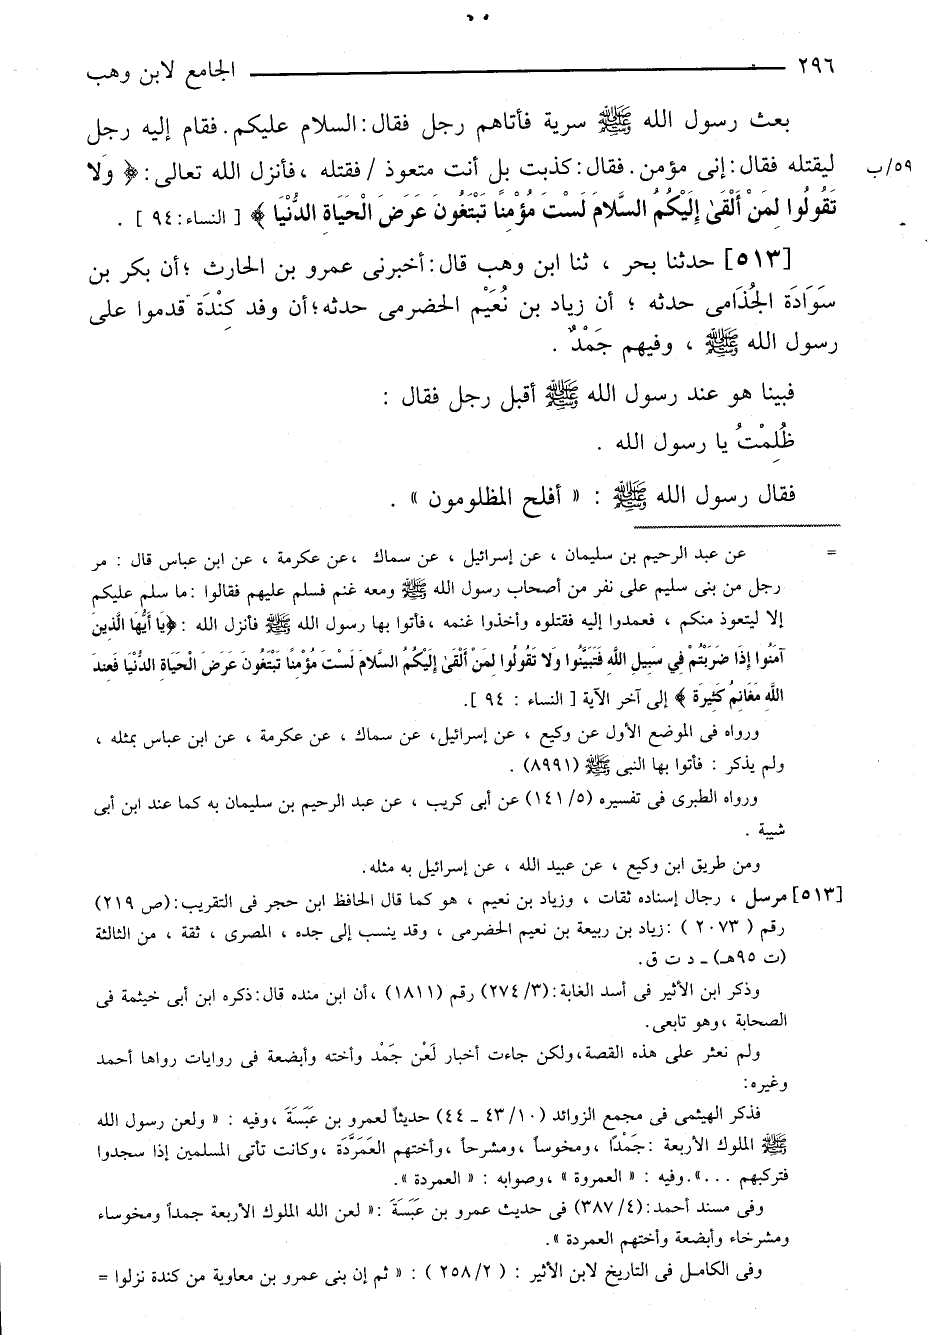 ٢٩٦ الجامع لابن وهب
بعث رسول الله ﷺ سرية فأتاهم رجل فقال : السلام عليكم . فقام إليه رجل
ليقتله فقال : إنى مؤمن . فقال : كذبت بل أنت متعوذ / فقتله ، فأنزل الله تعالى : ﴿ وَلا ٥٩/ب
تَقُولُوا لِمَنْ أَلْقَىٰ إِلَيْكُمُ السَّلامَ لَسْتَ مُؤْمِنًا تَبْتَغُونَ عَرَضَ الْحَيَاةِ الدُّنْيَا ﴾ [ النساء : ٩٤ ] .
[٥١٣] حدثنا بحر ، ثنا ابن وهب قال : أخبرنى عمرو بن الحارث ؛ أن بكر بن
سَوَادَة الجُذَامى حدثه ؛ أن زياد بن نُعَيْم الحضرمى حدثه ؛ أن وفد كِنْدَة قدموا على
رسول الله ﷺ ، وفيهم جَمْدٌ .
فبينا هو عند رسول الله ﷺ أقبل رجل فقال :
ظُلِمْتُ يا رسول الله .
فقال رسول الله ﷺ : « أفلح المظلومون » .
= عن عبد الرحيم بن سليمان ، عن إسرائيل ، عن سماك ، عن عكرمة ، عن ابن عباس قال : مر
رجل من بنى سليم على نفر من أصحاب رسول الله ﷺ ومعه غنم فسلم عليهم فقالوا : ما سلم عليكم
إلا ليتعوذ منكم ، فعمدوا إليه فقتلوه وأخذوا غنمه ، فأتوا بها رسول الله ﷺ فأنزل الله : ﴿يَا أَيُّهَا الَّذِينَ
آمَنُوا إِذَا ضَرَبْتُمْ فِي سَبِيلِ اللَّهِ فَتَبَيَّنُوا وَلا تَقُولُوا لِمَنْ أَلْقَىٰ إِلَيْكُمُ السَّلامَ لَسْتَ مُؤْمِنًا تَبْتَغُونَ عَرَضَ الْحَيَاةِ الدُّنْيَا فَعِندَ
اللَّهِ مَغَانِمُ كَثِيرَةٌ ﴾ إلى آخر الآية [ النساء : ٩٤ ].
ورواه فى الموضع الأول عن وكيع ، عن إسرائيل، عن سماك ، عن عكرمة ، عن ابن عباس بمثله ،
ولم يذكر : فأتوا بها النبى ﷺ (٨٩٩١) .
ورواه الطبرى فى تفسيره (١٤١/٥) عن أبى كريب ، عن عبد الرحيم بن سليمان به كما عند ابن أبى
شيبة .
ومن طريق ابن وكيع ، عن عبيد الله ، عن إسرائيل به مثله.
[٥١٣] مرسل ، رجال إسناده ثقات ، وزياد بن نعيم ، هو كما قال الحافظ ابن حجر فى التقريب : (ص ٢١٩)
رقم ( ٢٠٧٣ ) : زياد بن ربيعة بن نعيم الحضرمى ، وقد ينسب إلى جده ، المصرى ، ثقة ، من الثالثة
(ت ٩٥هـ) ـ د ت ق.
وذكر ابن الأثير فى أسد الغابة : (٢٧٤/٣) رقم (١٨١١) ، أن ابن منده قال : ذكره ابن أبى خيثمة فى
الصحابة ، وهو تابعى.
ولم نعثر على هذه القصة ، ولكن جاءت أخبار لَعْن جَمْد وأخته وأبضعة فى روايات رواها أحمد
وغيره :
فذكر الهيثمى فى مجمع الزوائد (٤٣/١٠ ـ ٤٤) حديثاً لعمرو بن عَبَسَة ، وفيه : « ولعن رسول الله
ﷺ الملوك الأربعة : جَمْدًا ، ومخوساً ، ومشرحاً ، وأختهم العَمَرَّدَة ، وكانت تأتى المسلمين إذا سجدوا
فتركبهم ...». وفيه : « العمروة » ، وصوابه : « العمردة ».
وفى مسند أحمد : (٣٨٧/٤) فى حديث عمرو بن عَبَسَة : « لعن الله الملوك الأربعة جمداً ومخوساء
ومشرخاء وأبضعة وأختهم العمردة ».
وفى الكامل فى التاريخ لابن الأثير : ( ٢٥٨/٢ ) : « ثم إن بنى عمرو بن معاوية من كندة نزلوا =